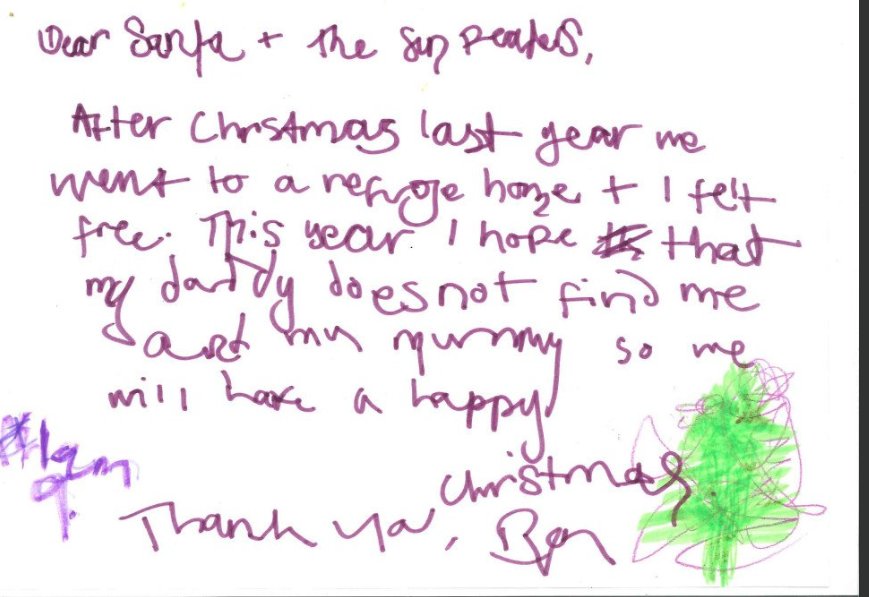 Dear Santa + the Sun readers,
After Christmas last year we
went to a refuge home + I felt
free. This year I hope that
my daddy does not find me
and my mummy so we
will have a happy
christmas
I am
9.
Thank you, Ben